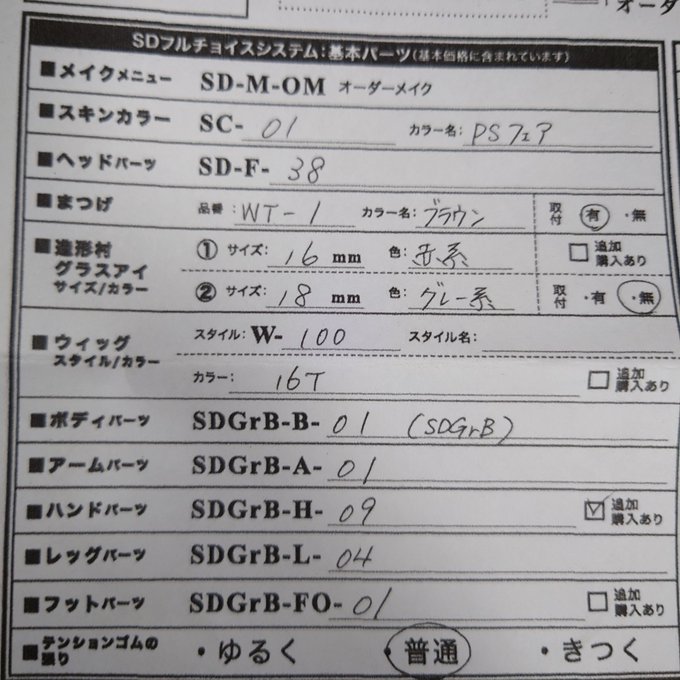 オーダ
SDフルチョイスシステム：基本パーツ（基本価格に含まれています）
■メイクメニュー SD-M-OM オーダーメイク
■スキンカラー SC- 01 カラー名: PSフェア
■ヘッドパーツ SD-F- 38
■まつげ 品番: WT-1 カラー名: ブラウン 取付 有 ・無
■造形村 グラスアイ サイズ/カラー
① サイズ: 16 mm 色: 赤系 □ 追加購入あり
② サイズ: 18 mm 色: グレー系 取付 ・有 ・無
■ウィッグ スタイル/カラー
スタイル: W- 100 スタイル名:
カラー: 16T □ 追加購入あり
■ボディパーツ SDGrB-B- 01 (SDGrB)
■アームパーツ SDGrB-A- 01
■ハンドパーツ SDGrB-H- 09 ☑ 追加購入あり
■レッグパーツ SDGrB-L- 04
■フットパーツ SDGrB-FO- 01 □ 追加購入あり
■テンションゴムの張り ・ゆるく ・普通 ・きつく